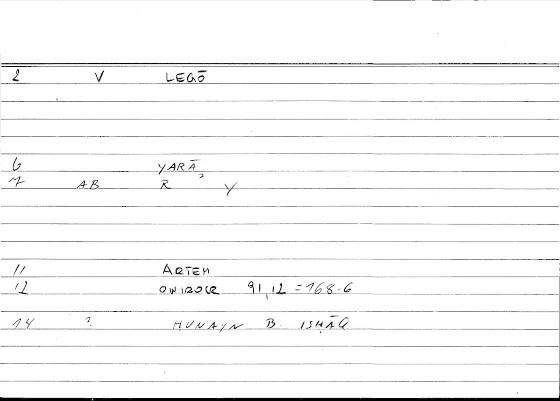 2 V LEGŌ
6 YARĀ
7 AB R ʾ Y
11 ARTEM
12 ONIROCR 91,12 = 168.6
14 ? HUNAYN B. ISḤĀQ